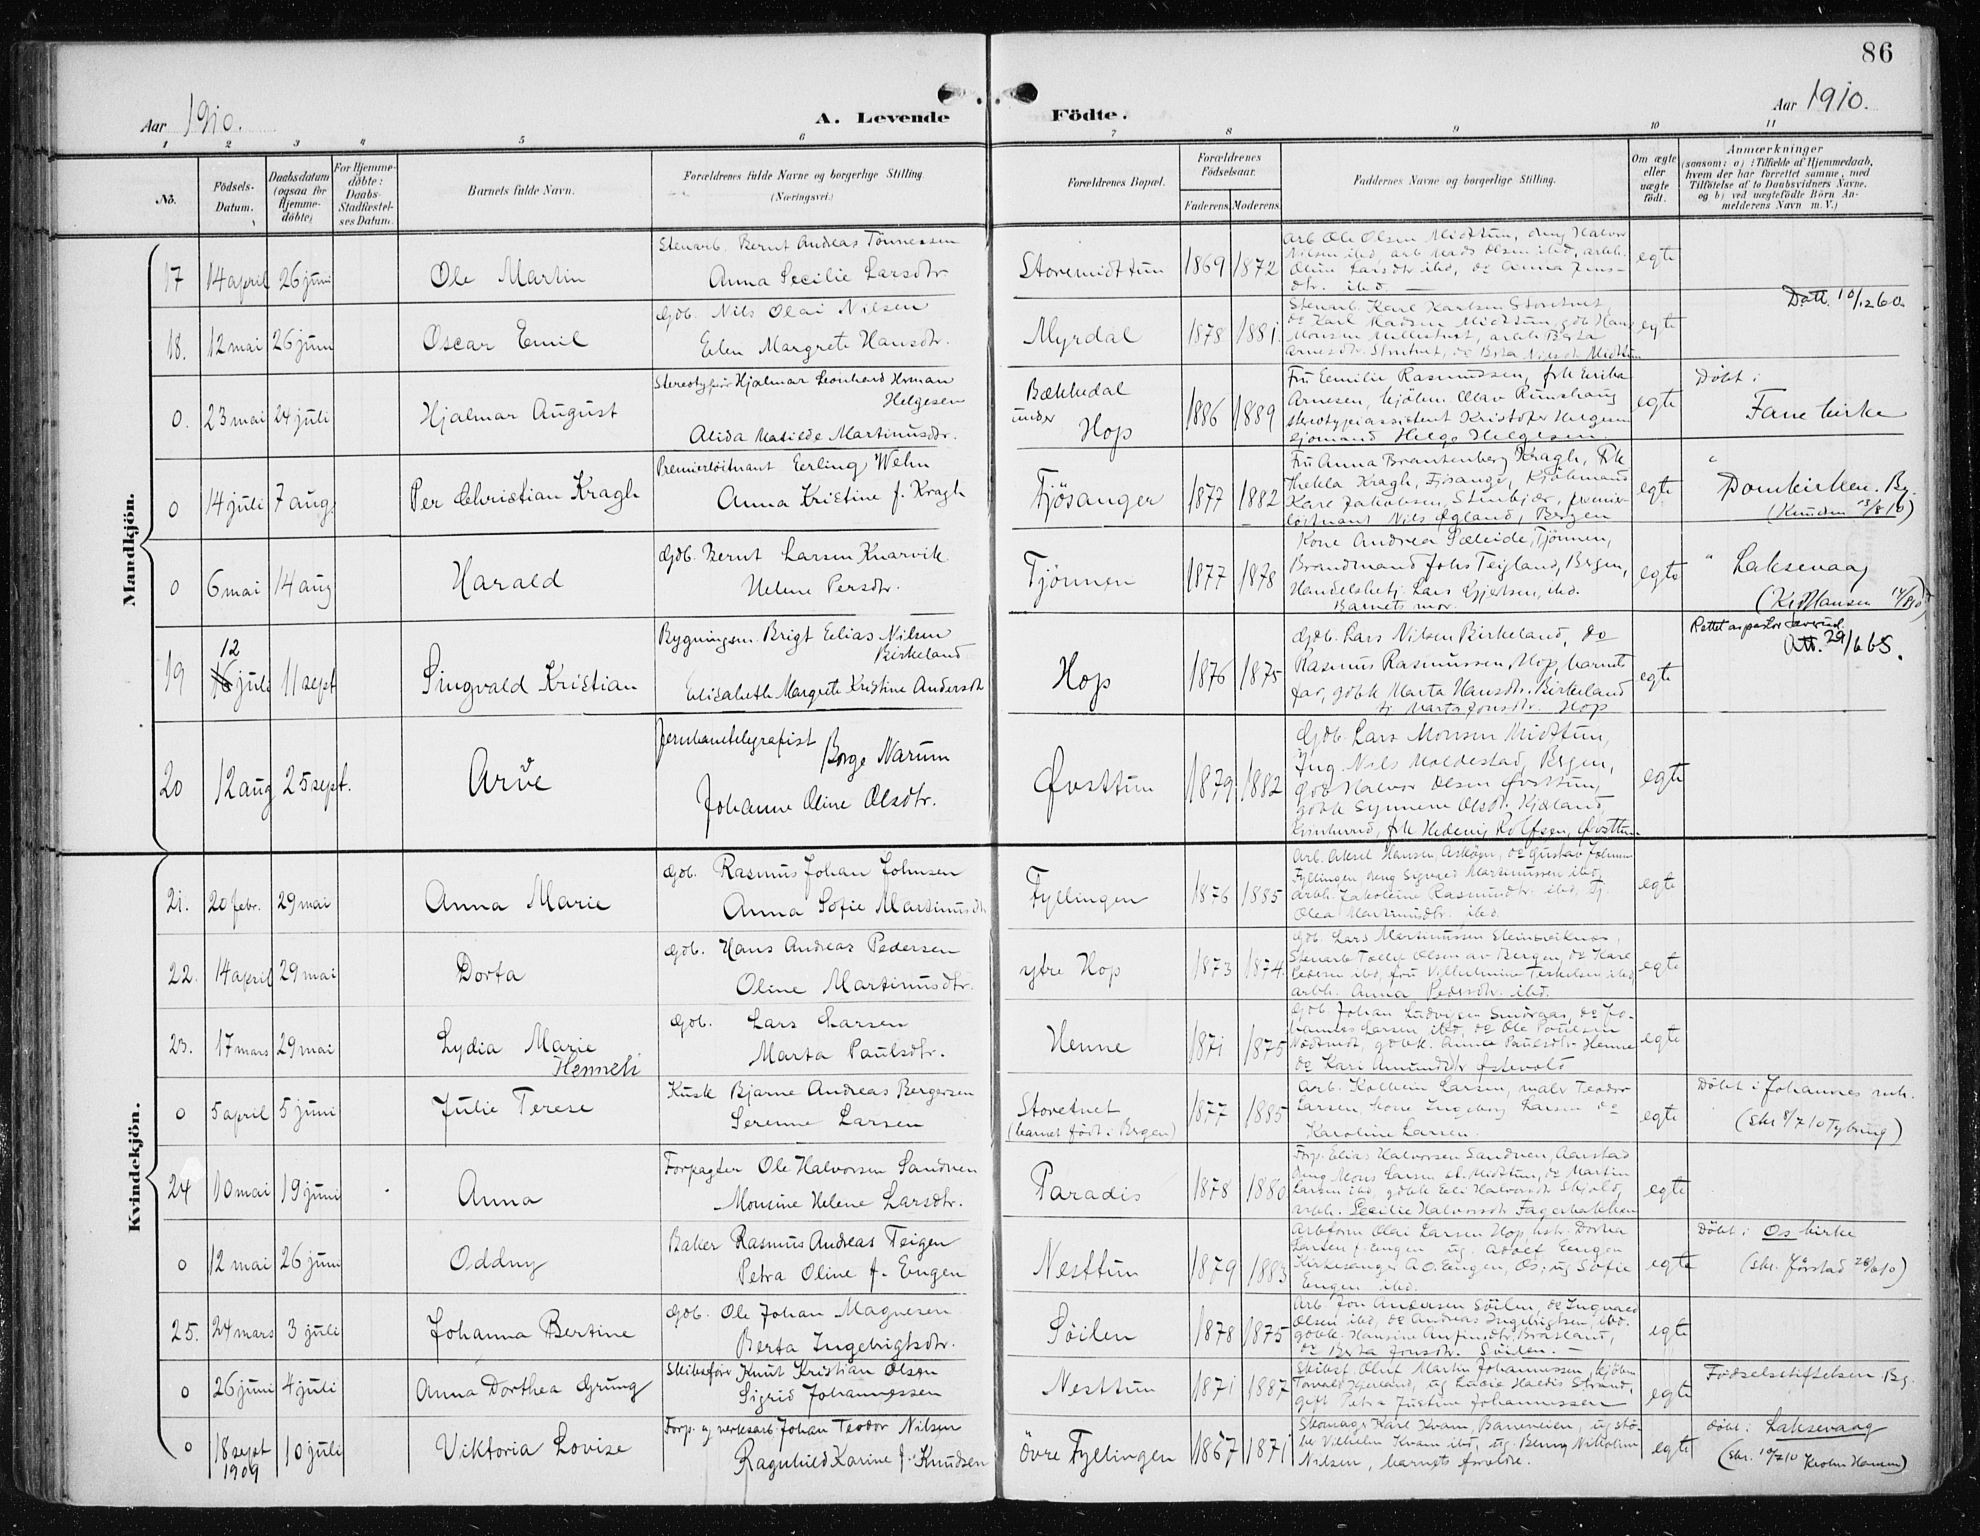 86
Aar 1910.
A. Levende Födte.
Aar 1910.
1 2 3 4 5 6 7 8 9 10 11
No. Födsels-Datum. Daabsdatum (ogsaa for Hjemme-döbte) For Hjemme-döbte: Daabs-Stadfæstel-ses Datum. Barnets fulde Navn. Forældrenes fulde Navne og borgerlige Stilling. (Næringsvei.) Forældrenes Bopæl. Forældrenes Födselsaar. Faderens Moderens Faddernes Navne og borgerlige Stilling. Om ægte eller uægte født. Anmærkninger
(saasom: a) i Tilfælde af Hjemmedaab,
hvem der har forrettet samme, med
Tilföielse af to Daabsvidners Navne,
og b) ved uægtefödte Börn An-
melderens Navn m. V.)
Mandkjön.
17 14 april 26 juni Ole Martin
Stenarb. Bernt Andreas Tönnessen
Anna Secilie Larsdtr
Storemidttun 1869 1872
Arb Ole Olsen Midttun, Halvor
Nilsen ibd, arb Mads Olsen ibd, arbk.
Oline Larsdtr ibd, do Anna
dtr. ibd. —
egte
18. 12 mai 26 juni Oscar Emil
Gdb. Nils Olai Nilsen
Elen Margrete Hansdtr.
Myrdal 1878 1881.
Stenarb. Karl Karlsen Storetvet
do Karl Madsen Midttun, gdb Hans
Monsen arbk Berta
Arnesdtr. Storetvet, do Berta Nilsdtr Midttun
egte
Datt. 10/12 60.
0. 23 mai 24 juli Hjalmar August
Stereotypør Hjalmar Leonhard Herman
Helgesen
Alida Matilde Martinusdtr.
Bækkedal
under
Hop 1886 1889
Fru Emilie Rasmussen, frk Erika
Arnesen, kjøbm Olav Rimshaug
stereotypeiassistent Kristofer Helgesen
sjømand Helge Helgesen
egte
Döbt i
Fane kirke
0 14 juli 7 aug. Per Christian Kragh
Premierløitnant Erling Wehn
Anna Kristine f. Kragh
Fjösanger 1877 1882
Fru Anna Brantenberg Kragh, frk
Thekla Kragh, Fjøsanger, Kjöbmand
Karl Jakobsen, Stenkjær, premier-
löitnant Nils Øgland, Bergen
egte
" Domkirken. Bg.
(Knudsen 13/8 10)
0 6 mai 14 aug Harald
Gdb. Bernt Larsen Knarvik.
Helene Persdtr.
Tjönnen 1877 1878
Kone Andrea Sæleide, Tjönnen,
Brandmand Johs Teigland, Bergen,
Handelsbetj. Lars Gjertsen, ibd.
Barnets mor.
egte
" Laksevaag
(Kr Hansen 14/8 10)
19 12 juli 11 sept Singvald Kristian
Bygningsm. Brigt Elias Nilsen
Birkeland
Elisabeth Margrete Kristine Andersdtr
Hop 1876 1875
Gdb. Lars Nilsen Birkeland, do
Rasmus Rasmussen, Hop, barnets
far, gdbk Marta Hansdtr. Birkeland
Marta Jonsdtr. Hop
egte
Rettet av pastor
Att. 29/6 65.
20 12 aug 25 sept. Arve
Jernbanetelegrafist Borge Narum
Johanne Oline Olsdtr.
Øvsttun 1879 1882
Gdb Lars Monsen Midttun,
Ing. Nils Moldestad, Bergen,
gdb Halvor Olsen Øvsttun,
gdbk Synneve Olsdt. Kjæland
frk Hedevig Rolfsen, Øvsttun
egte
Kvindekjön.
21. 20 febr. 29 mai Anna Marie
Gdb. Rasmus Johan Johnsen
Anna Sofie Martinusdtr
Fyllingen 1876 1885
Arb. Aksel Hansen, Askøen, do Gustav Johnsen
Fyllingen, Sigvard Martinussen ibd,
arbk. Jakobine Rasmusdtr. ibd, Tj.
Olea Martinusdtr ibd.
egte
22. 14 april 29 mai Dorta
Gdb. Hans Andreas Pedersen
Oline Martinusdtr.
ytre Hop 1873 1874.
Gdb. Lars Martinussen Steinsviknes,
Stenarb Tollef Olsen av Bergen, do Karl
Pedersen ibd, fru Vilhelmine Terkelsen ibd,
arbk. Anna Pedersdtr. ibd.
egte
23. 17 mars 29 mai Lydia Marie
Henneli
Gdb. Lars Larsen
Marta Paulsdtr.
Henne 1871 1875
Gdb. Johan Ludvigsen Smöraas, do Jo-
hannes Larsen, ibd, do Ole Poulsen
Nedtvedt, gdbk. Anna Paulsdtr Henne
do Kari Amundsdtr Østevold
egte
0 5 april 5 juni Julie Terese
Kusk Bjarne Andreas Bergersen
Serenne Larsen
Storetvet
(barnet født i Bergen) 1877 1885
Arb. Kolbein Larsen, maler Teodor
Larsen, kone Ingeborg Larsen do
Karoline Larsen.
egte
Döbt i Johannes
(skr 8/7 10 Tybring)
24 10 mai 19 juni Anna
Forpagter Ole Halvorsen Sandven
Monsine Helene Larsdtr.
Paradis 1878 1880
Forp. Elias Halvorsen Sandven, Aarstad
Ung Mons Larsen Midttun, do Martin
Larsen ibd, gdbk Eli Halvorsdtr Skjold,
arbk. Secilie Halvorsdtr Fagerbakken
egte
0 12 mai 26 juni Oddny
Baker Rasmus Andreas Teigen
Petra Oline f. Engen
Nesttun 1879 1883
Arbform Olai Larsen Hop, hstr. Dorthea
Larsen f. Engen ug. Adolf Engen
Kirkesanger A. O. Engen, Os, ug Sofie
Engen ibd.
egte
Döbt i Os kirke
(skr. Førstad 28/6 10)
25. 24 mars 3 juli Johanna Bertine
Gdb. Ole Johan Magnesen
Berta Ingebrigtsdtr.
Söilen 1878 1875
Arb Jon Andersen Söilen, do Ingvald
Olsen ibd, do Andreas Ingebrigtsen, ibd.
gdbk. Hansine Anfinsdtr. Bråsland,
do Berta Jonsdtr. Söilen. —
egte
0 26 juni 4 juli Anna Dorthea Grung
Skibsfør Knut Kristian Olsen
Sigrid Johannessen
Nesttun 1871 1887
Skibst. Oluf Martin Johannessen, kjöbm
Torvald ug Lucie Haldis Strand,
gift Petra Justine Johannessen
egte
Födselsstiftelsen Bg.
0 18 sept
1909 10 juli Viktoria Lovise
Forp. og verksarb Johan Teodor Nilsen
Ragnhild Karine f. Knudsen
övre Fyllingen 1867 1871
Skomager Karl Kvam, Baneveien, ug
Vilhelm Kvam ibd, ug. Benny Nikoline
Nilsen, barnets forældre.
egte
döbt i Laksevaag
(skr. 10/7 10 Krohn Hansen)